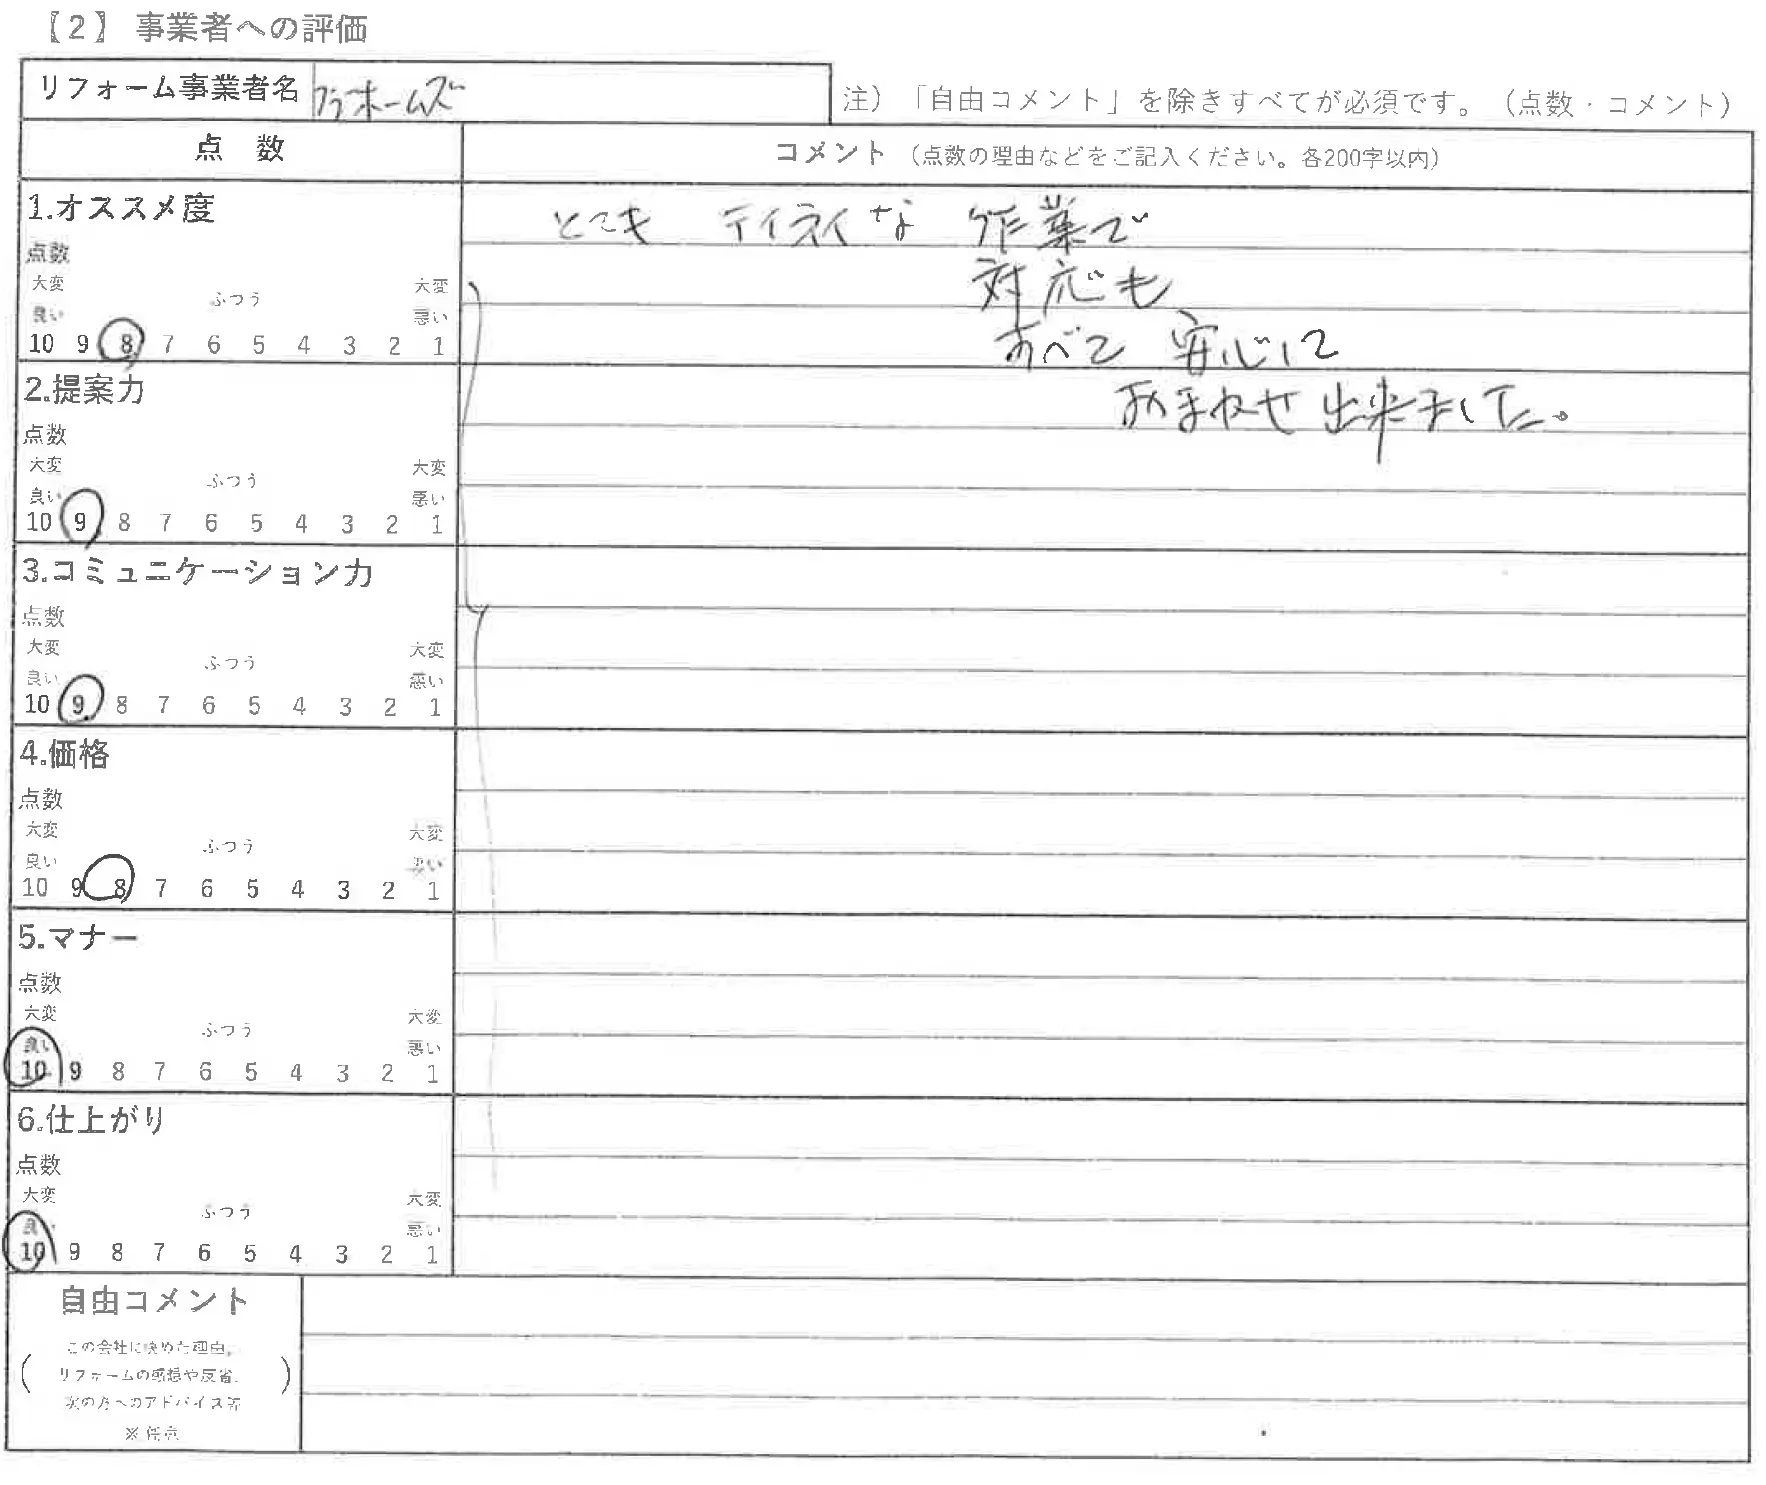 【2】 事業者への評価
リフォーム事業者名 プラホームズ
注）「自由コメント」を除きすべてが必須です。（点数・コメント）
点 数
コメント（点数の理由などをご記入ください。各200字以内）
1.オススメ度
点数
大変 ふつう 大変
良い 悪い
10 9 8 7 6 5 4 3 2 1
とても テイネイな 作業で
対応も
すべて 安心して
おまかせ出来ました。
2.提案力
点数
大変 ふつう 大変
良い 悪い
10 9 8 7 6 5 4 3 2 1
3.コミュニケーション力
点数
大変 ふつう 大変
良い 悪い
10 9 8 7 6 5 4 3 2 1
4.価格
点数
大変 ふつう 大変
良い 悪い
10 9 8 7 6 5 4 3 2 1
5.マナー
点数
大変 ふつう 大変
良い 悪い
10 9 8 7 6 5 4 3 2 1
6.仕上がり
点数
大変 ふつう 大変
良い 悪い
10 9 8 7 6 5 4 3 2 1
自由コメント
（この会社に決めた理由、
リフォームの感想や反省、
次の方へのアドバイス等）
※任意